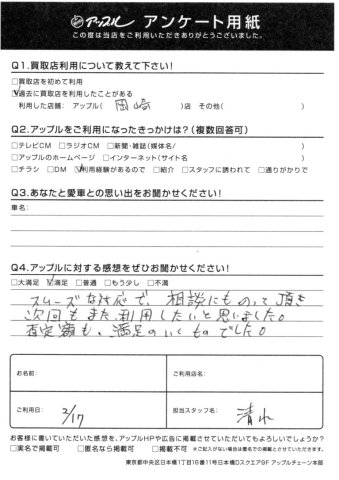 アップル アンケート用紙
この度は当店をご利用いただきありがとうございました。
Q1.買取店利用について教えて下さい!
□買取店を初めて利用
☑過去に買取店を利用したことがある
利用した店舗: アップル( 岡崎 )店 その他( )
Q2.アップルをご利用になったきっかけは?(複数回答可)
□テレビCM □ラジオCM □新聞・雑誌(媒体名/ )
□アップルのホームページ □インターネット(サイト名 )
□チラシ □DM ☑利用経験があるので □紹介 □スタッフに誘われて □通りがかりで
Q3.あなたと愛車との思い出をお聞かせください!
車名:
Q4.アップルに対する感想をぜひお聞かせください!
□大満足 ☑満足 □普通 □もう少し □不満
スムーズな対応で、相談にものって頂き
次回もまた利用したいと思いました。
査定額も、満足のいくものでした。
お名前: ご利用店名:
ご利用日: 2/17 担当スタッフ名: 清水
お客様に書いていただいた感想を、アップルHPや広告に掲載させていただいてもよろしいでしょうか?
□実名で掲載可 □匿名なら掲載可 □掲載不可 ※ご記入がない場合は匿名での掲載とさせていただきます。
東京都中央区日本橋1丁目16番11号日本橋Dスクエア9F アップルチェーン本部